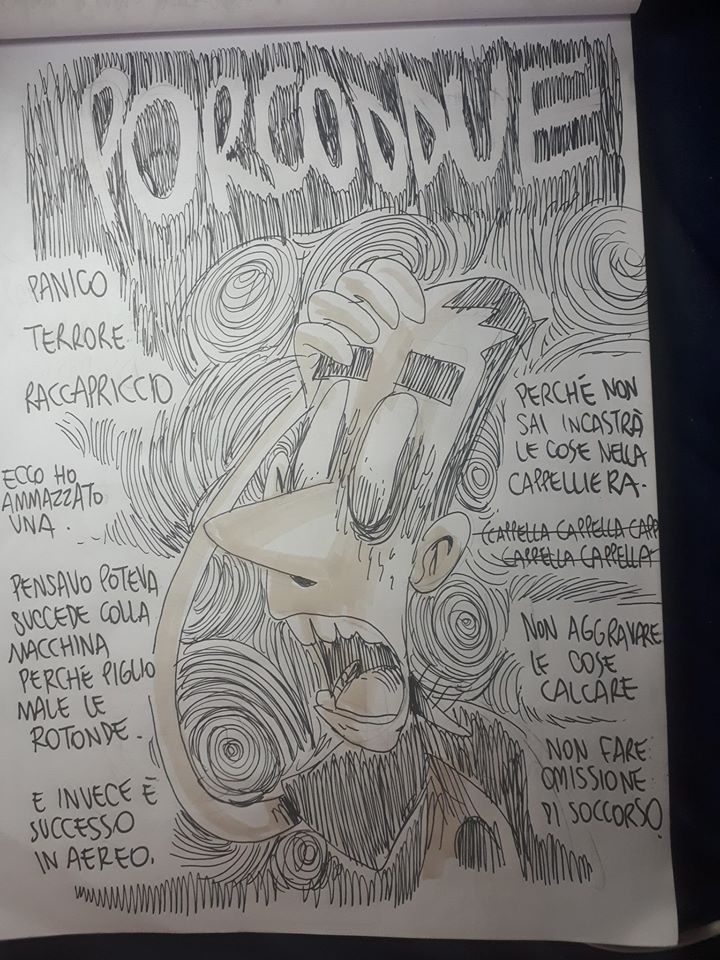 PORCODDUE
PANICO
TERRORE
RACCAPRICCIO
ECCO HO
AMMAZZATO
UNA.
PENSAVO POTEVA
SUCCEDE COLLA
MACCHINA
PERCHÉ PIGLIO
MALE LE
ROTONDE.
E INVECE È
SUCCESSO
IN AEREO.
PERCHÉ NON
SAI INCASTRÀ
LE COSE NELLA
CAPPELLIERA.
CAPPELLA CAPPELLA CAPP
CAPPELLA CAPPELLA
NON AGGRAVARE
LE COSE
CALCARE
NON FARE
OMISSIONE
DI SOCCORSO